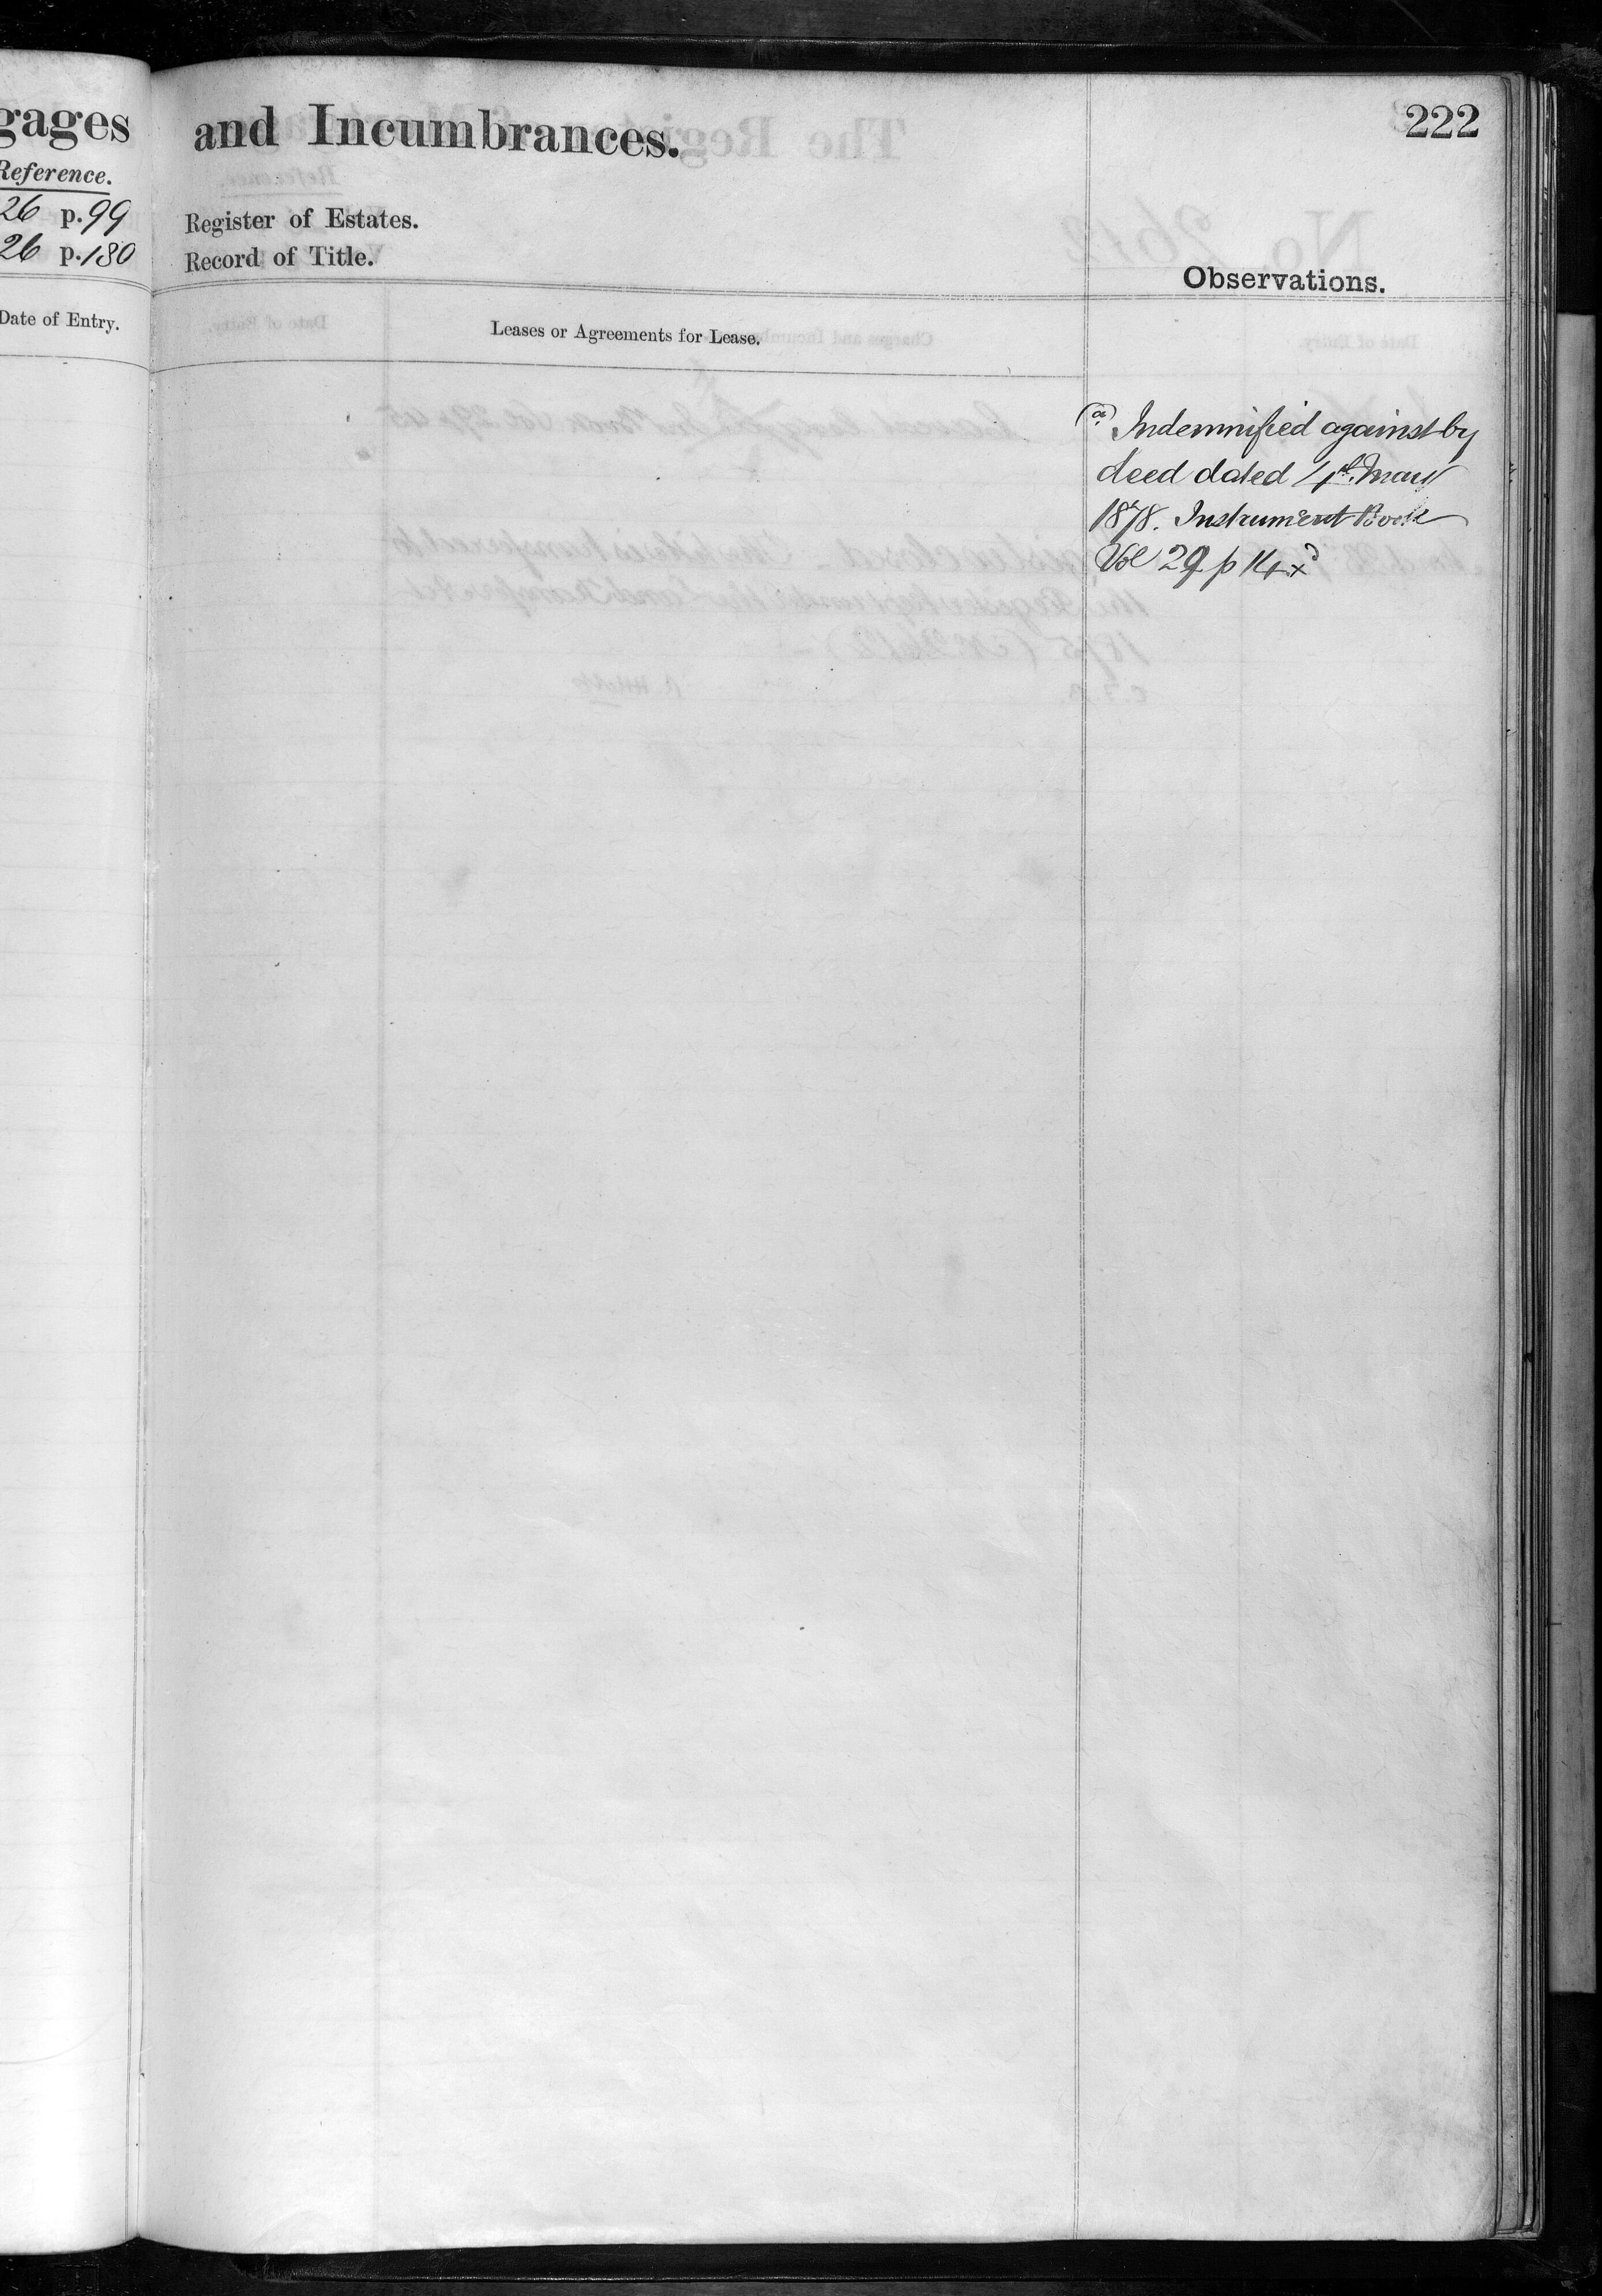 gages
Reference.
26 p. 99
26 p. 180
Date of Entry.
and Incumbrances.
222
Register of Estates.
Record of Title.
Observations.
Leases or Agreements for Lease.
(a) Indemnified against by
deed dated May
1878. Instrument Book
Vol 29 p 14